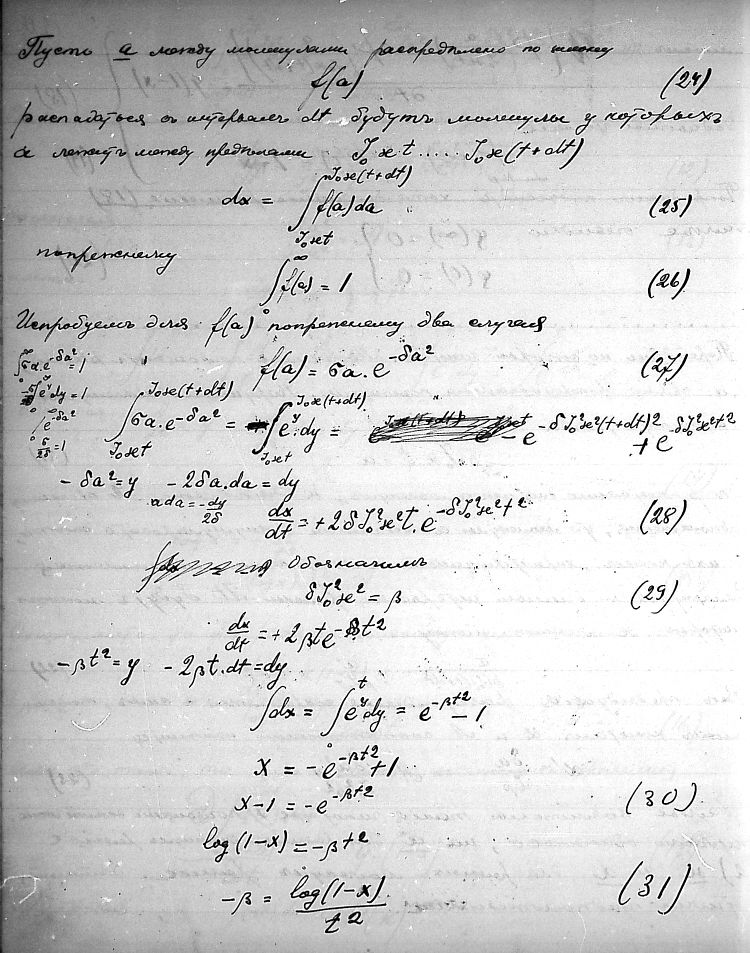 Пусть a между молекулами распределено по закону
f(a) (24)
распадаться въ интервалъ dt будутъ молекулы у которыхъ
a лежитъ между пределами J₀ϰt ..... J₀ϰ(t+dt)
dx = ∫_{J₀ϰt}^{J₀ϰ(t+dt)} f(a)da (25)
попрежнему
∫_0^∞ f(a) = 1 (26)
Испробуемъ для f(a) попрежнему два случая
f(a) = σa.e^{-δa²} (27)
∫_0^∞ σa.e^{-δa²} = 1
∫e^y dy = 1
e^{-δa²}
σ/2δ = 1
∫_{J₀ϰt}^{J₀ϰ(t+dt)} σa.e^{-δa²} = -∫_{J₀ϰt}^{J₀ϰ(t+dt)} e^y.dy = -e^{-δJ₀²ϰ²(t+dt)²} + e^{-δJ₀²ϰ²t²}
-δa² = y -2δa.da = dy
ada = -dy/2δ
dx/dt = +2δJ₀²ϰ²t.e^{-δJ₀²ϰ²t²} (28)
Обозначимъ
δJ₀²ϰ² = β (29)
dx/dt = +2βte^{-βt²}
-βt² = y -2βt.dt = dy
∫dx = ∫_0^t e^y dy = e^{-βt²} - 1
x = -e^{-βt²} + 1
x-1 = -e^{-βt²} (30)
log(1-x) = -βt²
-β = log(1-x)/t² (31)